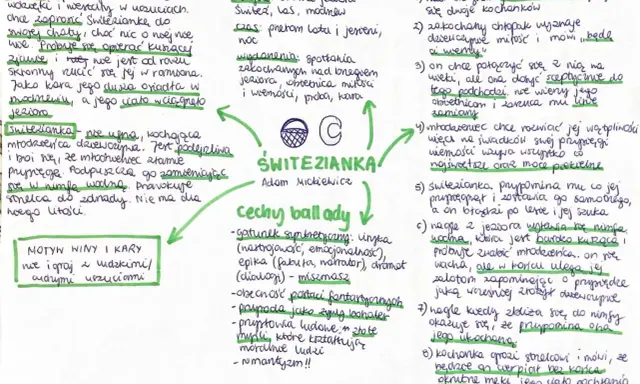 wdzięki i wierzy w uczuciach.
chce zaprosić Świteziankę do
swojej chaty, choć nic o niej nie
wie. Próbuje się opierać kuszącej
zjawie i nie jest od razu
skłonny rzucić się jej w ramiona.
Jako kara jego dusza osiadła w
modrzewiu, a jego ciało wciągnęło
jezioro
Świtezianka - nie ufna, kochająca
młodzieńca dziewczyna. Jest podejrzliwa
i boi się, że młodzieniec złamie
przysięgę. Podpuszcza go zamieniając
się w nimfę wodną. Prowokuje
strzelca do zdrady. Nie ma dla
niego litości.
MOTYW WINY I KARY
nie igraj z ludzkimi/
cudzymi uczuciami
Świteź, las, modrzew
czas: przełom lata i jesieni,
noc
wydarzenia: spotkania
zakochanych nad brzegiem
jeziora, obietnica miłości
i wierności, próba, kara
ŚWITEZIANKA
Adam Mickiewicz
cechy ballady
- gatunek synkretyczny: liryka
(nastrojowość, emocjonalność),
epika (fabuła, narrator), dramat
(dialogi) - miszmasz
- obecność postaci fantastycznych
- przyroda jako żywy bohater
- przysłowia ludowe, złote
myśli, które kształtują
moralnie ludzi
- romantyzm!!
się dwoje kochanków
2) zakochany chłopak wyznaje
dziewczynie miłość i mówi „będę
ci wierny"
3) on chce połączyć się z nią na
wieki, ale ona dosyć sceptycznie do
tego podchodzi, nie wierzy jego
obietnicom i zarzuca mu liczne
zamiany
4) młodzieniec chce rozwiać jej wątpliwości
więc na świadków swej przysięgi
wierności wzywa wszystko co
najświętsze oraz moce piekielne
5) świtezianka przypomina mu co jej
przysięgał i zostawia go samotnego,
a on błądzi po lesie i jej szuka
6) nagle z jeziora wyłania się nimfa
wodna, która jest bardzo kusząca i
próbuje zwabić młodzieńca. on się
waha, ale w końcu ulega jej
zalotom zapominając o przysiędze
jaką wcześniej złożył dziewczynie
7) nagle kiedy zbliża się do nimfy
okazuje się, że przypomina ona
jego ukochaną
8) kochanka grozi strzelcowi i mówi, że
będzie on cierpiał bez końca
okrutne męki, jego ciało pochłania